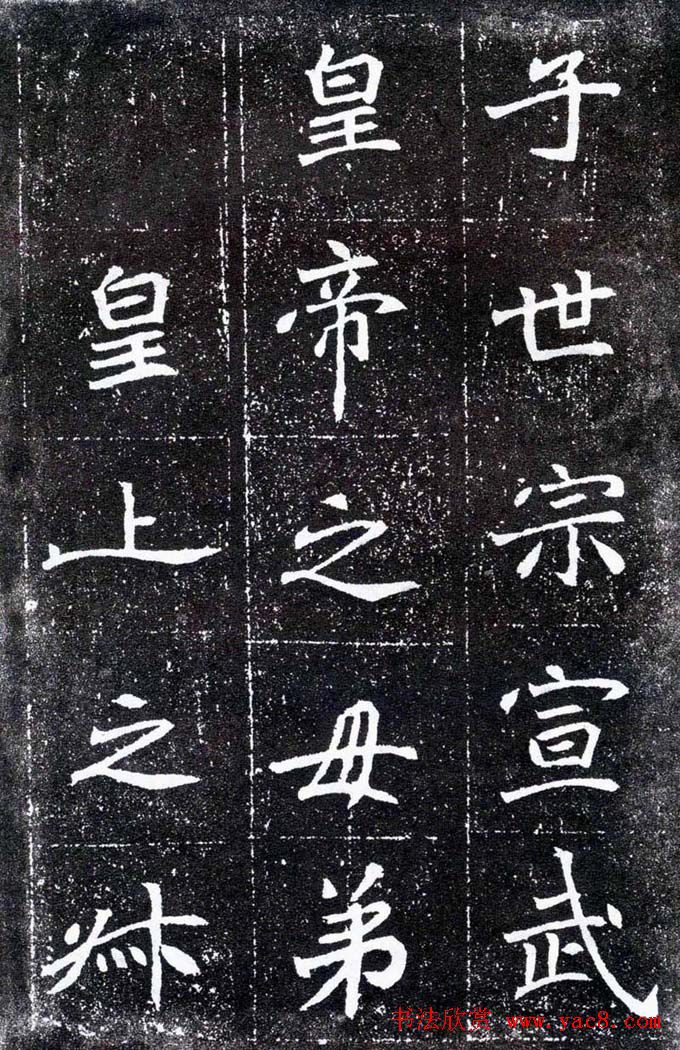 子世宗宣武
皇帝之母弟
皇上之叔
书法欣赏 www.yac8.com